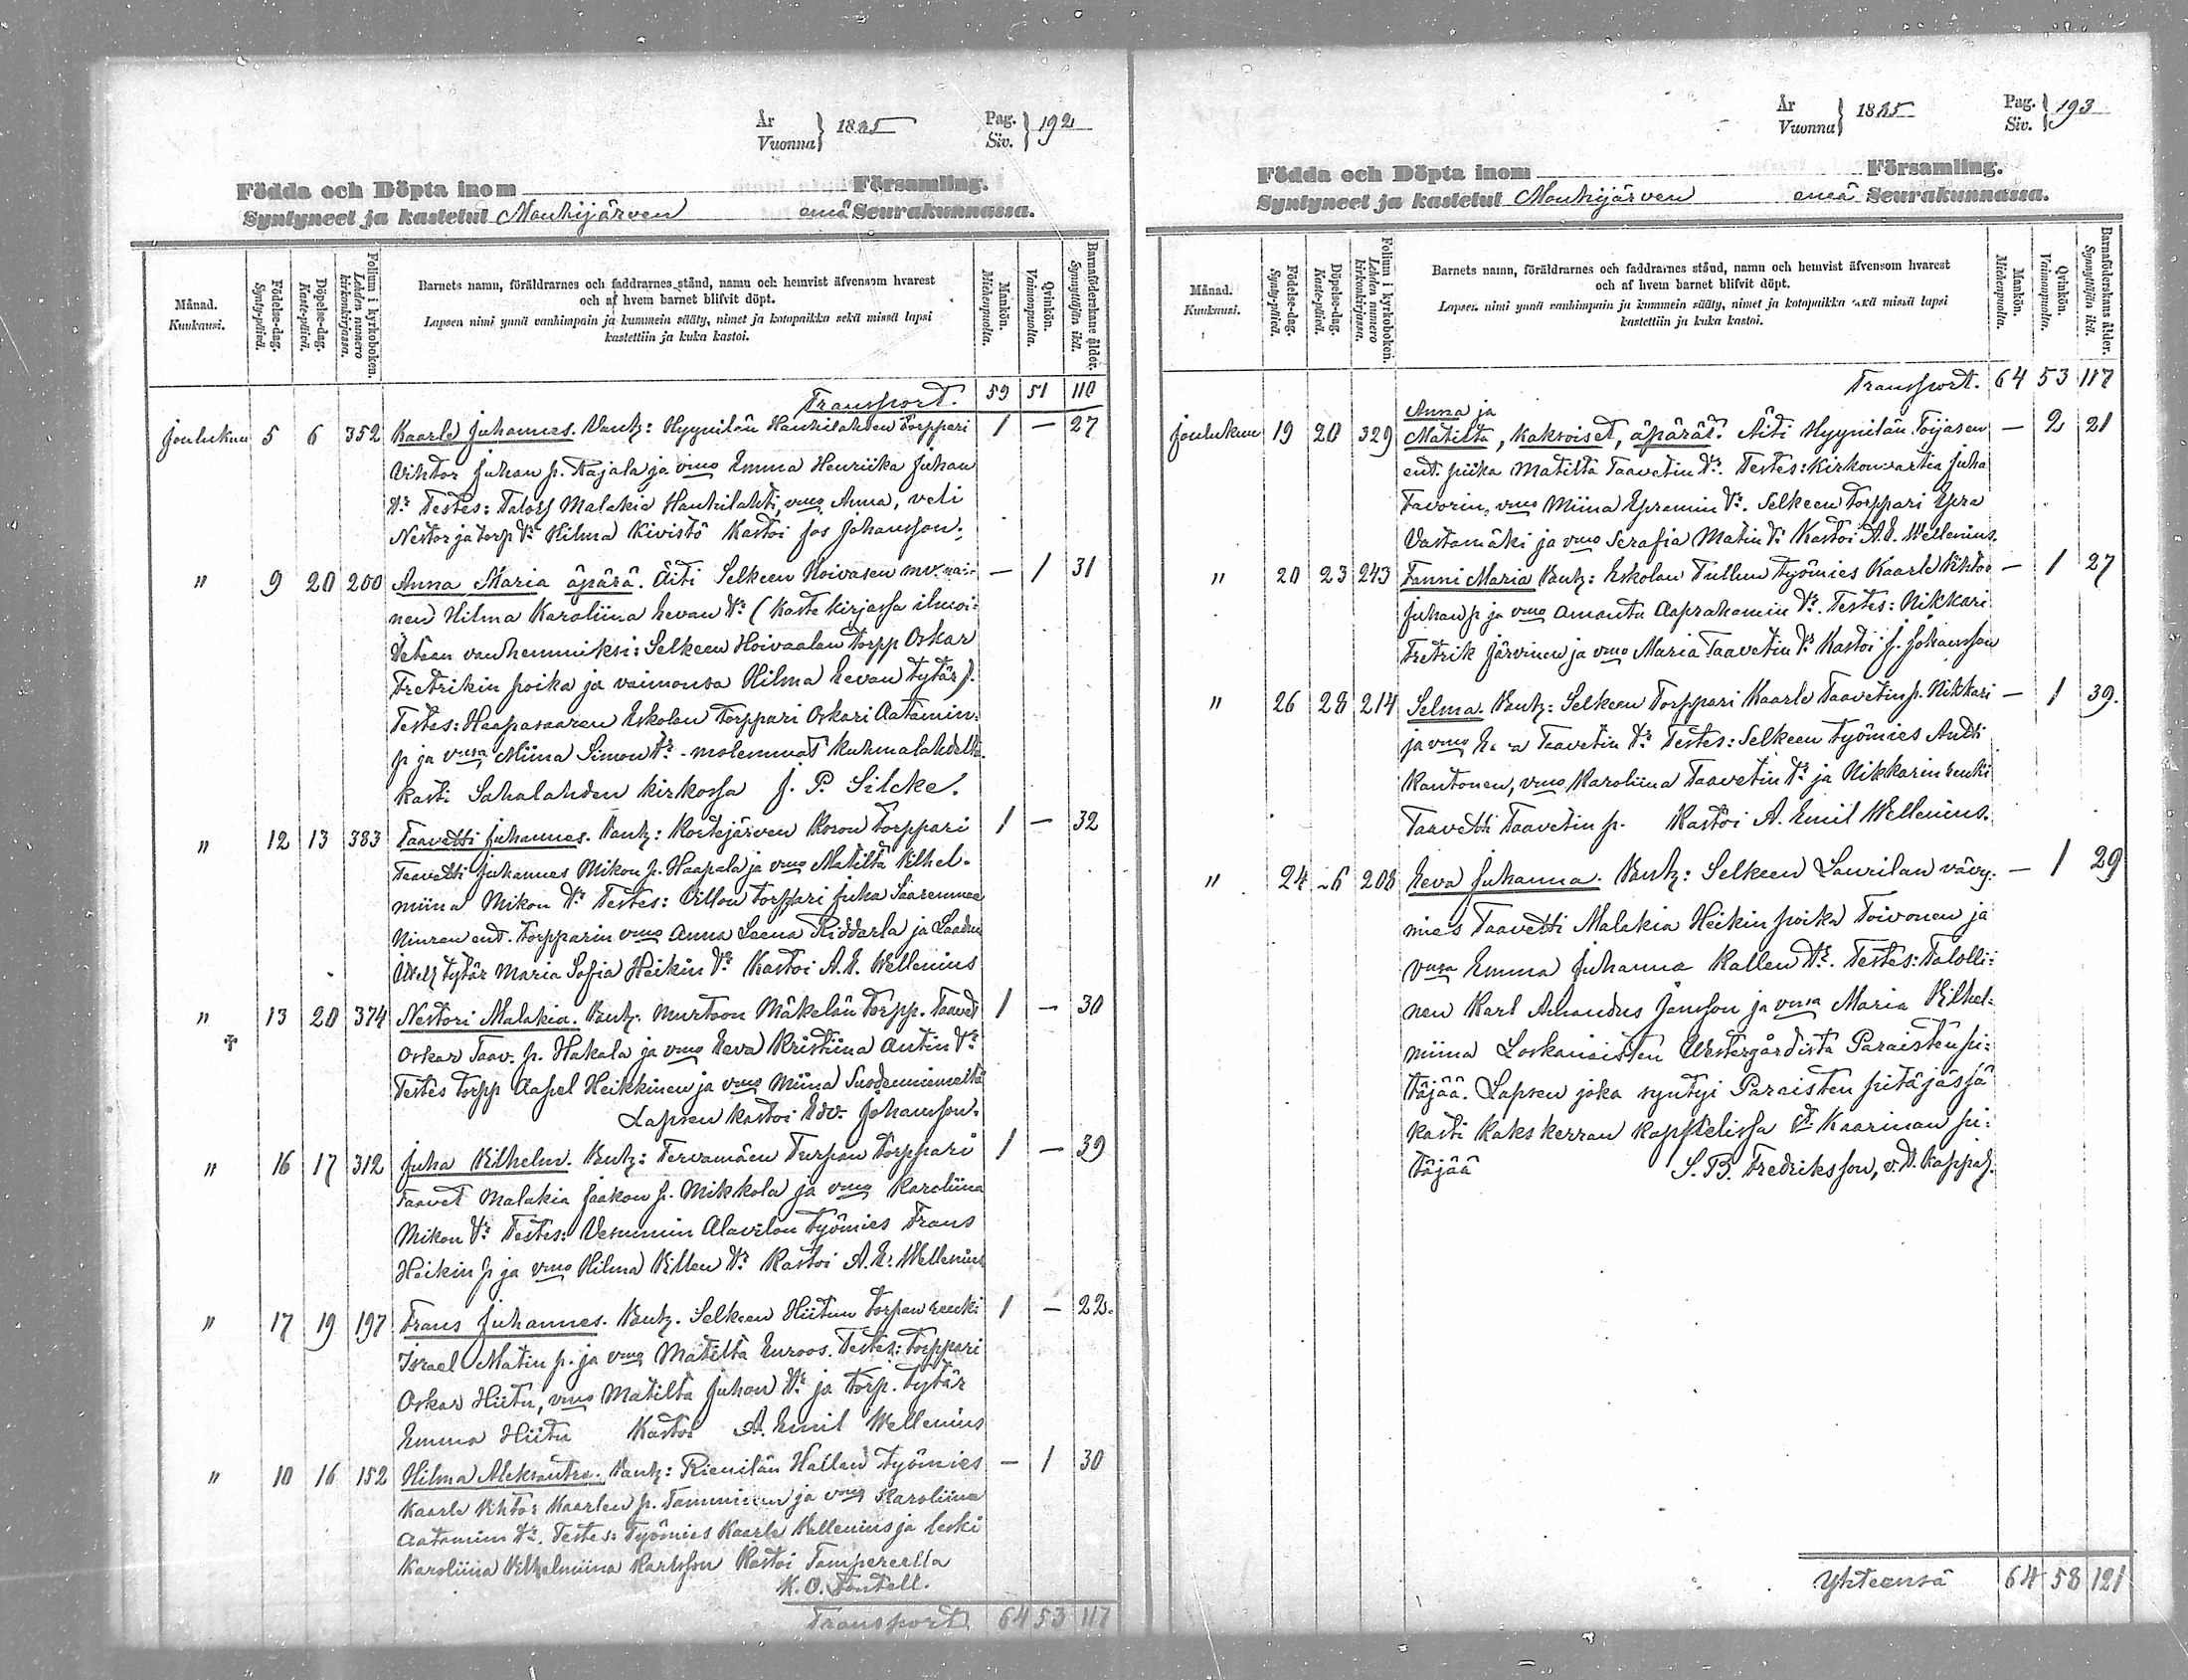 År
Vuonna } 1885 Pag.
Siv. } 192
Födda och Döpta inom Församling.
Syntyneet ja kastetut Mouhijärven emä Seurakunnassa.
Månad.
Kuukausi.
Födelse-dag.
Synty-päivä.
Döpelse-dag.
Kaste-päivä.
Folium i kyrkoboken.
Lehden numero kirkonkirjassa.
Barnets namn, föräldrarnes och faddrarnes stånd, namn och hemvist äfvensom hvarest
och af hvem barnet blifvit döpt.
Lapsen nimi ynnä vanhimpain ja kummein sääty, nimet ja kotopaikka sekä missä lapsi
kastettiin ja kuka kastoi.
Mankön.
Miehenpuolta.
Qvinkön.
Vaimonpuolta.
Barnaföderskans ålder.
Synnyttäjän ikä.
Transport. 59 51 110
Joulukuu 5 6 352 Kaarle Juhannes. Vanh: Hyynilän Haukilahden Torppari 1 — 27
Vihtor Juhan p. Rajala ja vmo Emma Henriika Juhan
tr Testes: Talolls Malakia Haukilahti, vmo Anna, veli
Nestor ja torp tr Hilma Kivistö Kastoi Jos Johansson.
" 9 20 200 Anna Maria äpärä. Äiti Selkeen Hoivasen mv. nai- — 1 31
nen Hilma Karoliina Eevan tr (Kastekirjassa ilmoi:
tetaan vanhemmiksi: Selkeen Hoivaalan torpp Oskar
Fretrikin poika ja vaimonsa Hilma Eevan tytär).
Testes: Haapasaaren Eskolan torppari Oskari Aatamin:
p ja vmsa Miina Simon tr - molemmat Kuhmalahdelta.
Kasti Sahalahden kirkossa J. P. Silcke.
" 12 13 383 Taavetti Juhannes. Vanh: Kortejärven Koson torppari 1 — 32
Taavetti Juhannes Mikon p. Haapala ja vmo Matilta Vilhel-
miina Mikon tr Testes: torppari Juha Saarenmaa
ent. torpparin vmo Anna Leena Riddarla ja
tytär Maria Sofia Heikin tr Kastoi A. E. Wellenius
" 13 20 374 Nestori Malakia. Vanh: Murtoon Mäkelän torpp. Taavet 1 — 30
Oskar Taav. p. Hakala ja vmo Eeva Kristiina Antin tr
Testes torpp Aapel Heikkinen ja vmo Miina Suodenniemeltä
Lapsen kastoi Edv. Johansson.
" 16 17 312 Juha Vilhelm. Vanh: Tervamäen Turpan torppari 1 — 39
Taavet Malakia Jaakon p. Mikkola ja vmo Karoliina
Mikon tr Testes: Vesunnin Alavilan työmies Frans
Heikin p ja vmo Hilma Villen tr Kastoi A. E. Wellenius
" 17 19 197 Frans Juhannes. Vanh. Selkeen Hiitun torpan renki 1 — 22.
Israel Matin p. ja vmo Matilta Enroos. Testes: Torppari
Oskar Hiitu, vmo Matilta Juhan tr ja torp. tytär
Emma Hiitu Kastoi A. Emil Wellenius
" 10 16 152 Hilma Aleksantra. Vanh: Rienilän Hallan työmies — 1 30
Kaarle Vihtor Kaarlen p. Tamminen ja vmo Karoliina
Aatamin tr. Testes: Työmies Kaarle Vellenius ja leski
Karoliina Vilhelmiina Karlsson Kastoi Tampereella
K. O. Fontell.
Transport 64 53 117
År
Vuonna } 1885 Pag.
Siv. } 193
Födda och Döpta inom Församling.
Syntyneet ja kastetut Mouhijärven emä Seurakunnassa.
Månad.
Kuukausi.
Födelse-dag.
Synty-päivä.
Döpelse-dag.
Kaste-päivä.
Folium i kyrkoboken.
Lehden numero kirkonkirjassa.
Barnets namn, föräldrarnes och faddrarnes stånd, namn och hemvist äfvensom hvarest
och af hvem barnet blifvit döpt.
Lapsen nimi ynnä vanhimpain ja kummein sääty, nimet ja kotopaikka sekä missä lapsi
kastettiin ja kuka kastoi.
Mankön.
Miehenpuolta.
Qvinkön.
Vaimonpuolta.
Barnaföderskans ålder.
Synnyttäjän ikä.
Transport. 64 53 117
Anna ja
Joulukuu 19 20 329 Matilta, kaksoiset, äpärät. Äiti Hyynilän Toijasen — 2 21
ent. piika Matilta Taavetin tr. Testes: Kirkonvartia Juha
Favorin, vmo Miina Epramin tr. Selkeen torppari Epra
Vastamäki ja vmo Serafia Matin tr Kastoi A. E. Wellenius.
" 20 23 243 Fanni Maria Vanh: Eskolan Tullun työmies Kaarle Vihtor — 1 27
Juhan p ja vmo Amanta Aaprahamin tr. Testes: Nikkari
Fretrik Järvinen ja vmo Maria Taavetin tr Kastoi J. Johansson
" 26 28 214 Selma. Vanh: Selkeen Torppari Kaarle Taavetin p. Nikkari — 1 39.
ja vmo Taavetin tr Testes: Selkeen työmies Antti
Kantonen, vmo Karoliina Taavetin tr ja Nikkarin renki
Taavetti Taavetin p. Kastoi A. Emil Wellenius.
" 24 26 208 Eeva Juhanna. Vanh: Selkeen Laurilan vävy- — 1 29
mies Taavetti Malakia Heikin poika Toivonen ja
vmsa Emma Juhanna Kallen tr. Testes: Talolli:
nen Karl Amandus Jansson ja vmsa Maria Vilhel:
miina Loskaisisten Westergårdista Paraisten pi:
täjää. Lapsen joka syntyi Paraisten pitäjässä
kasti Kakskerran kappelissa Kaarinan pi:
täjää S. B. Fredriksson, v.t. kappal.
Yhteensä 64 58 121